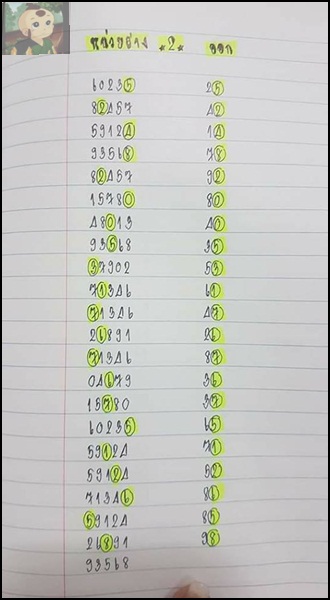 หน่วยล่าง *2* ออก
60235 25
82457 42
59124 14
93568 78
82457 92
15780 80
48013 40
93568 35
37902 53
71346 61
71346 47
26891 26
71346 87
04679 36
15780 37
60235 65
59124 71
59124 52
71346 86
59124 85
26891 98
93568